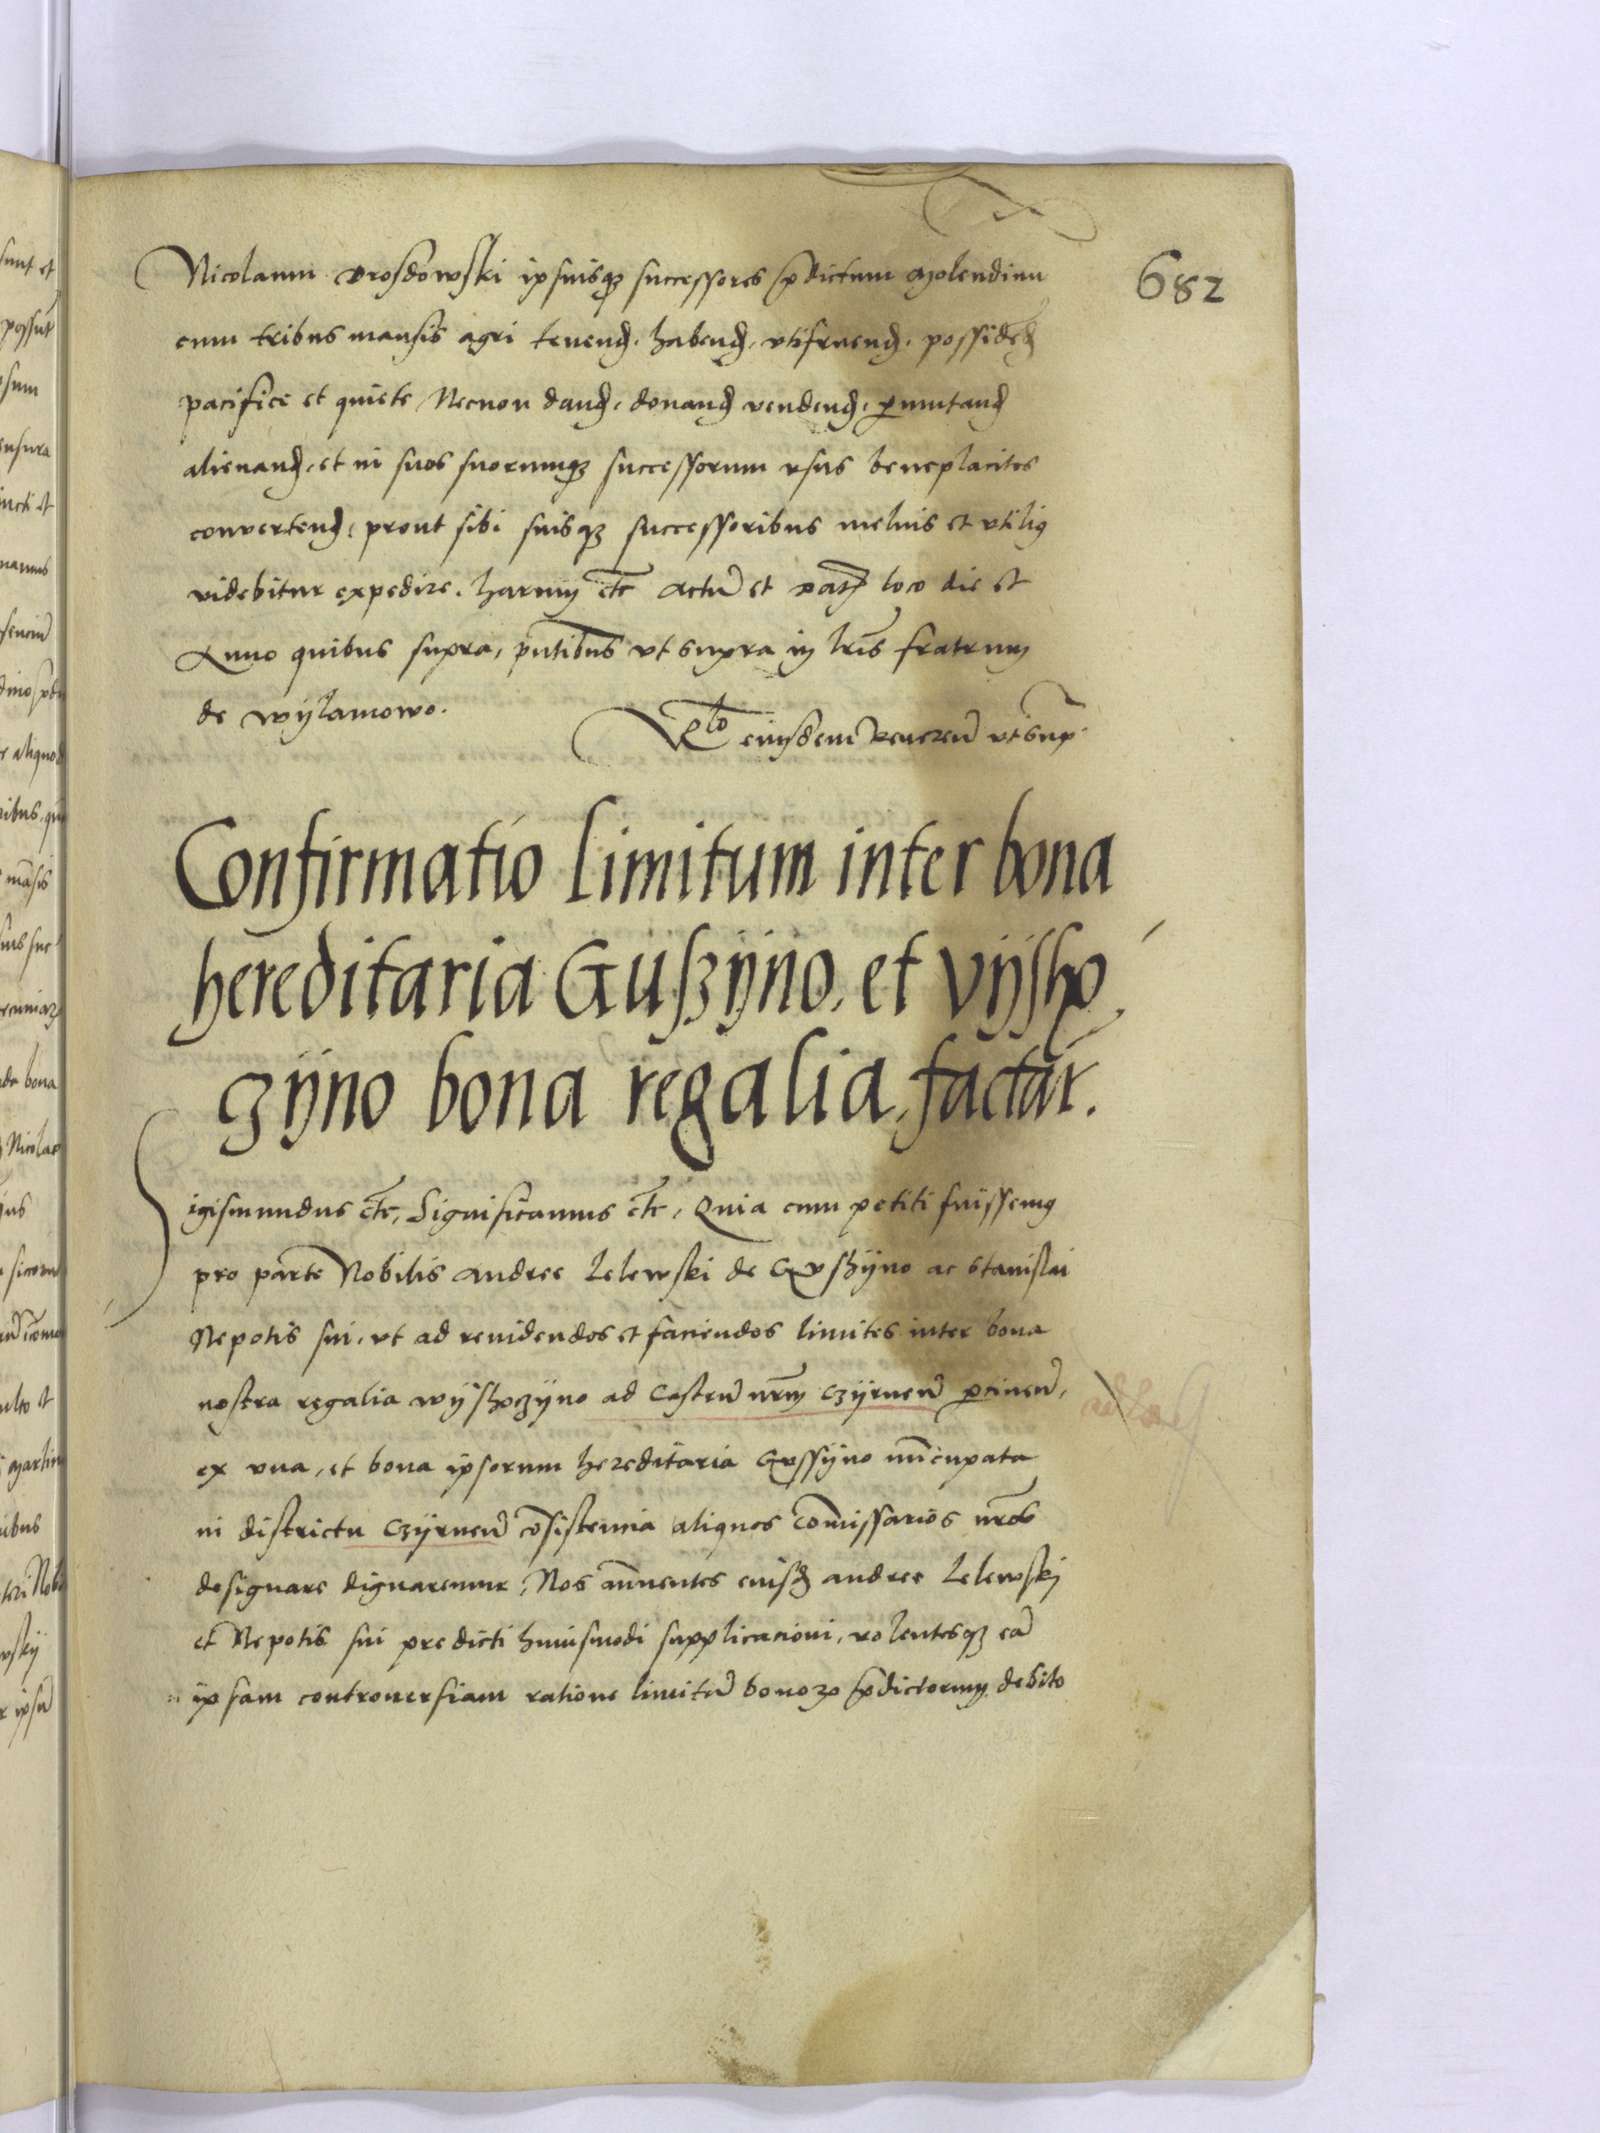 682
Nicolaum Drosdowski ipsuisqꝫ successores p̄dictum Molendinu
cum tribus mansis agri tenend, habend, vtifruend, possidend
pacifice et quiete Necnon dand, donand vendend, ꝑmutand
alienand, et in suos suorumqꝫ successorum vsus beneplacitos
convertend, prout sibi suisqꝫ successoribus melius et vtiliꝰ
videbitur expedire. harum etc̄ Actū et Datꝫ loco die et
Anno quibus supra, p̄ntibus vt supra in lr̄is fratrum
de wÿlamowo.
Rlo eiusdem Reueren̄ vt sup̄
Confirmatio limitum inter bona
hereditaria Guszÿno, et vÿsho,
czÿno bona regalia, factar̄.
Sigismundus etc̄, Significamus etc̄, Quia cum petiti fuissemꝰ
pro parte Nobilis Andree Lelewski de Gvszÿno ac Stanislai
Nepotis sui, vt ad reuidendos et faciendos limites inter bona
nostra regalia wÿshoczÿno ad Castrū nr̄m Czÿrnen̄ ꝑtinen̄,
ex vna, et bona ipsorum hereditaria Gvssÿno nūcupata
in districtu Czÿrnen̄ cōsistencia aliquos Cōmissarios nr̄os
designare dignaremur, Nos annuentes eiusd Andree Lelewski
et Nepotis sui predicti huiusmodi supplicacioni, volentesqꝫ eā
ipsam controuersiam ratione limitū bonoꝝ p̄dictorum debito